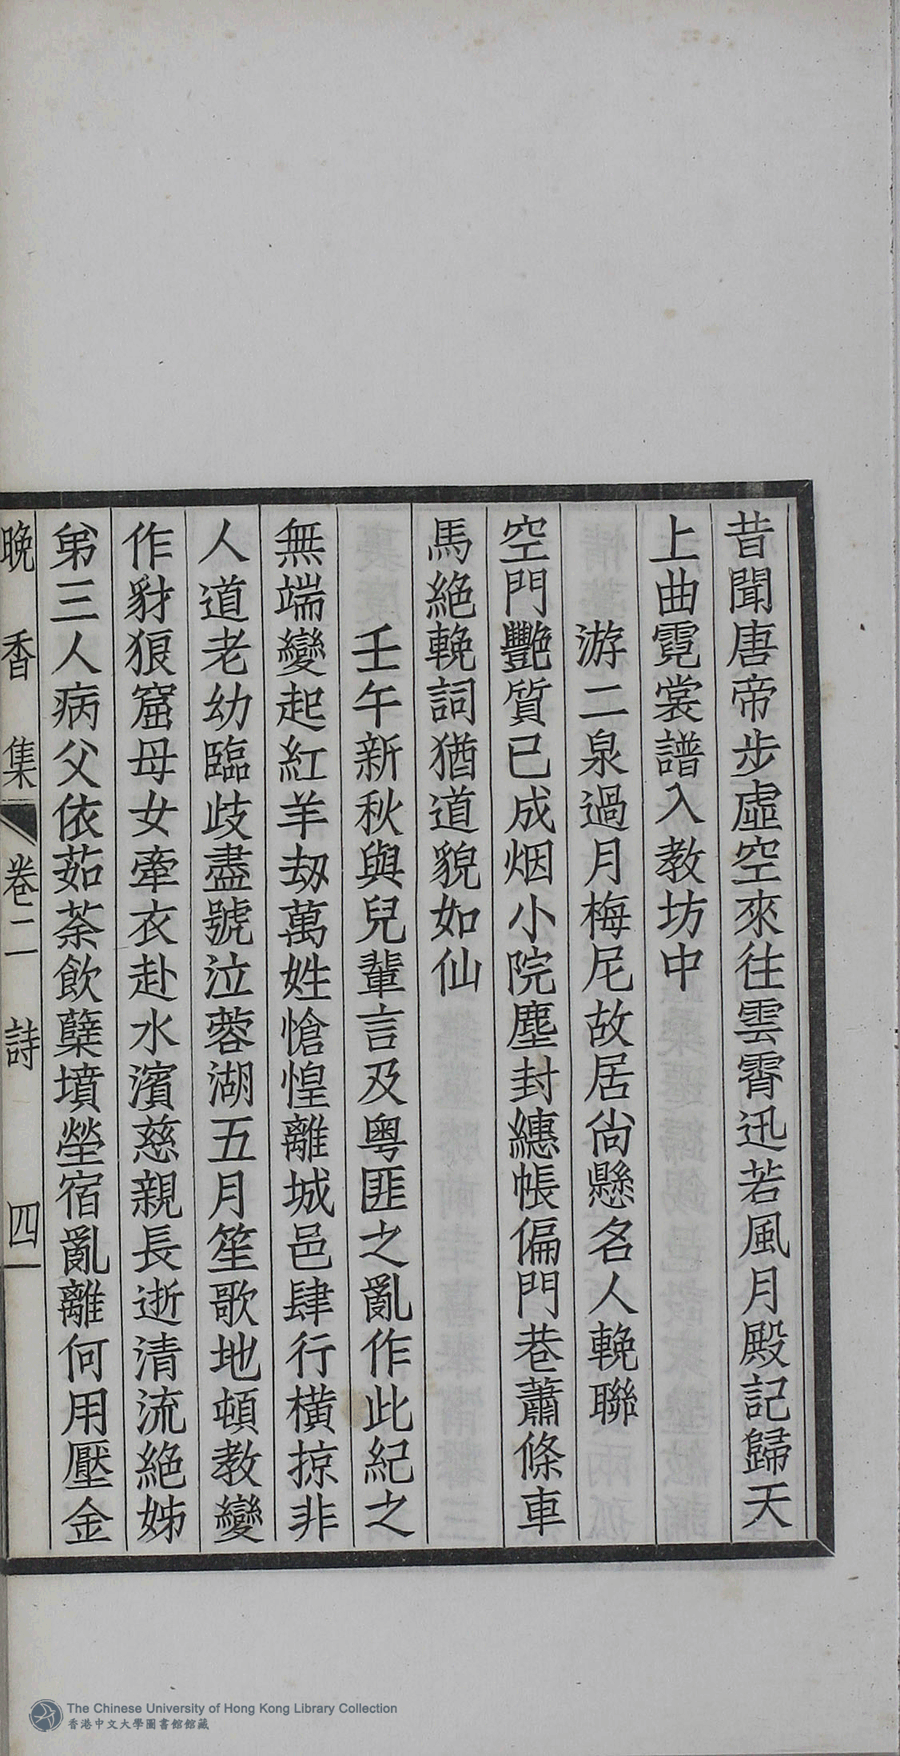 昔聞唐帝步虛空來往雲霄迅若風月殿記歸天
上曲霓裳譜入教坊中
游二泉過月梅尼故居尙懸名人輓聯
空門艷質已成烟小院塵封繐帳偏門巷蕭條車
馬絕輓詞猶道貌如仙
壬午新秋與兒輩言及粤匪之亂作此紀之
無端變起紅羊刼萬姓愴惶離城邑肆行橫掠非
人道老幼臨歧盡號泣蓉湖五月笙歌地頓教變
作豺狼窟母女牽衣赴水濱慈親長逝清流絕姊
弟三人病父依茹荼飲蘗墳塋宿亂離何用壓金
晚香集 卷二 詩 四
The Chinese University of Hong Kong Library Collection
香港中文大學圖書館館藏